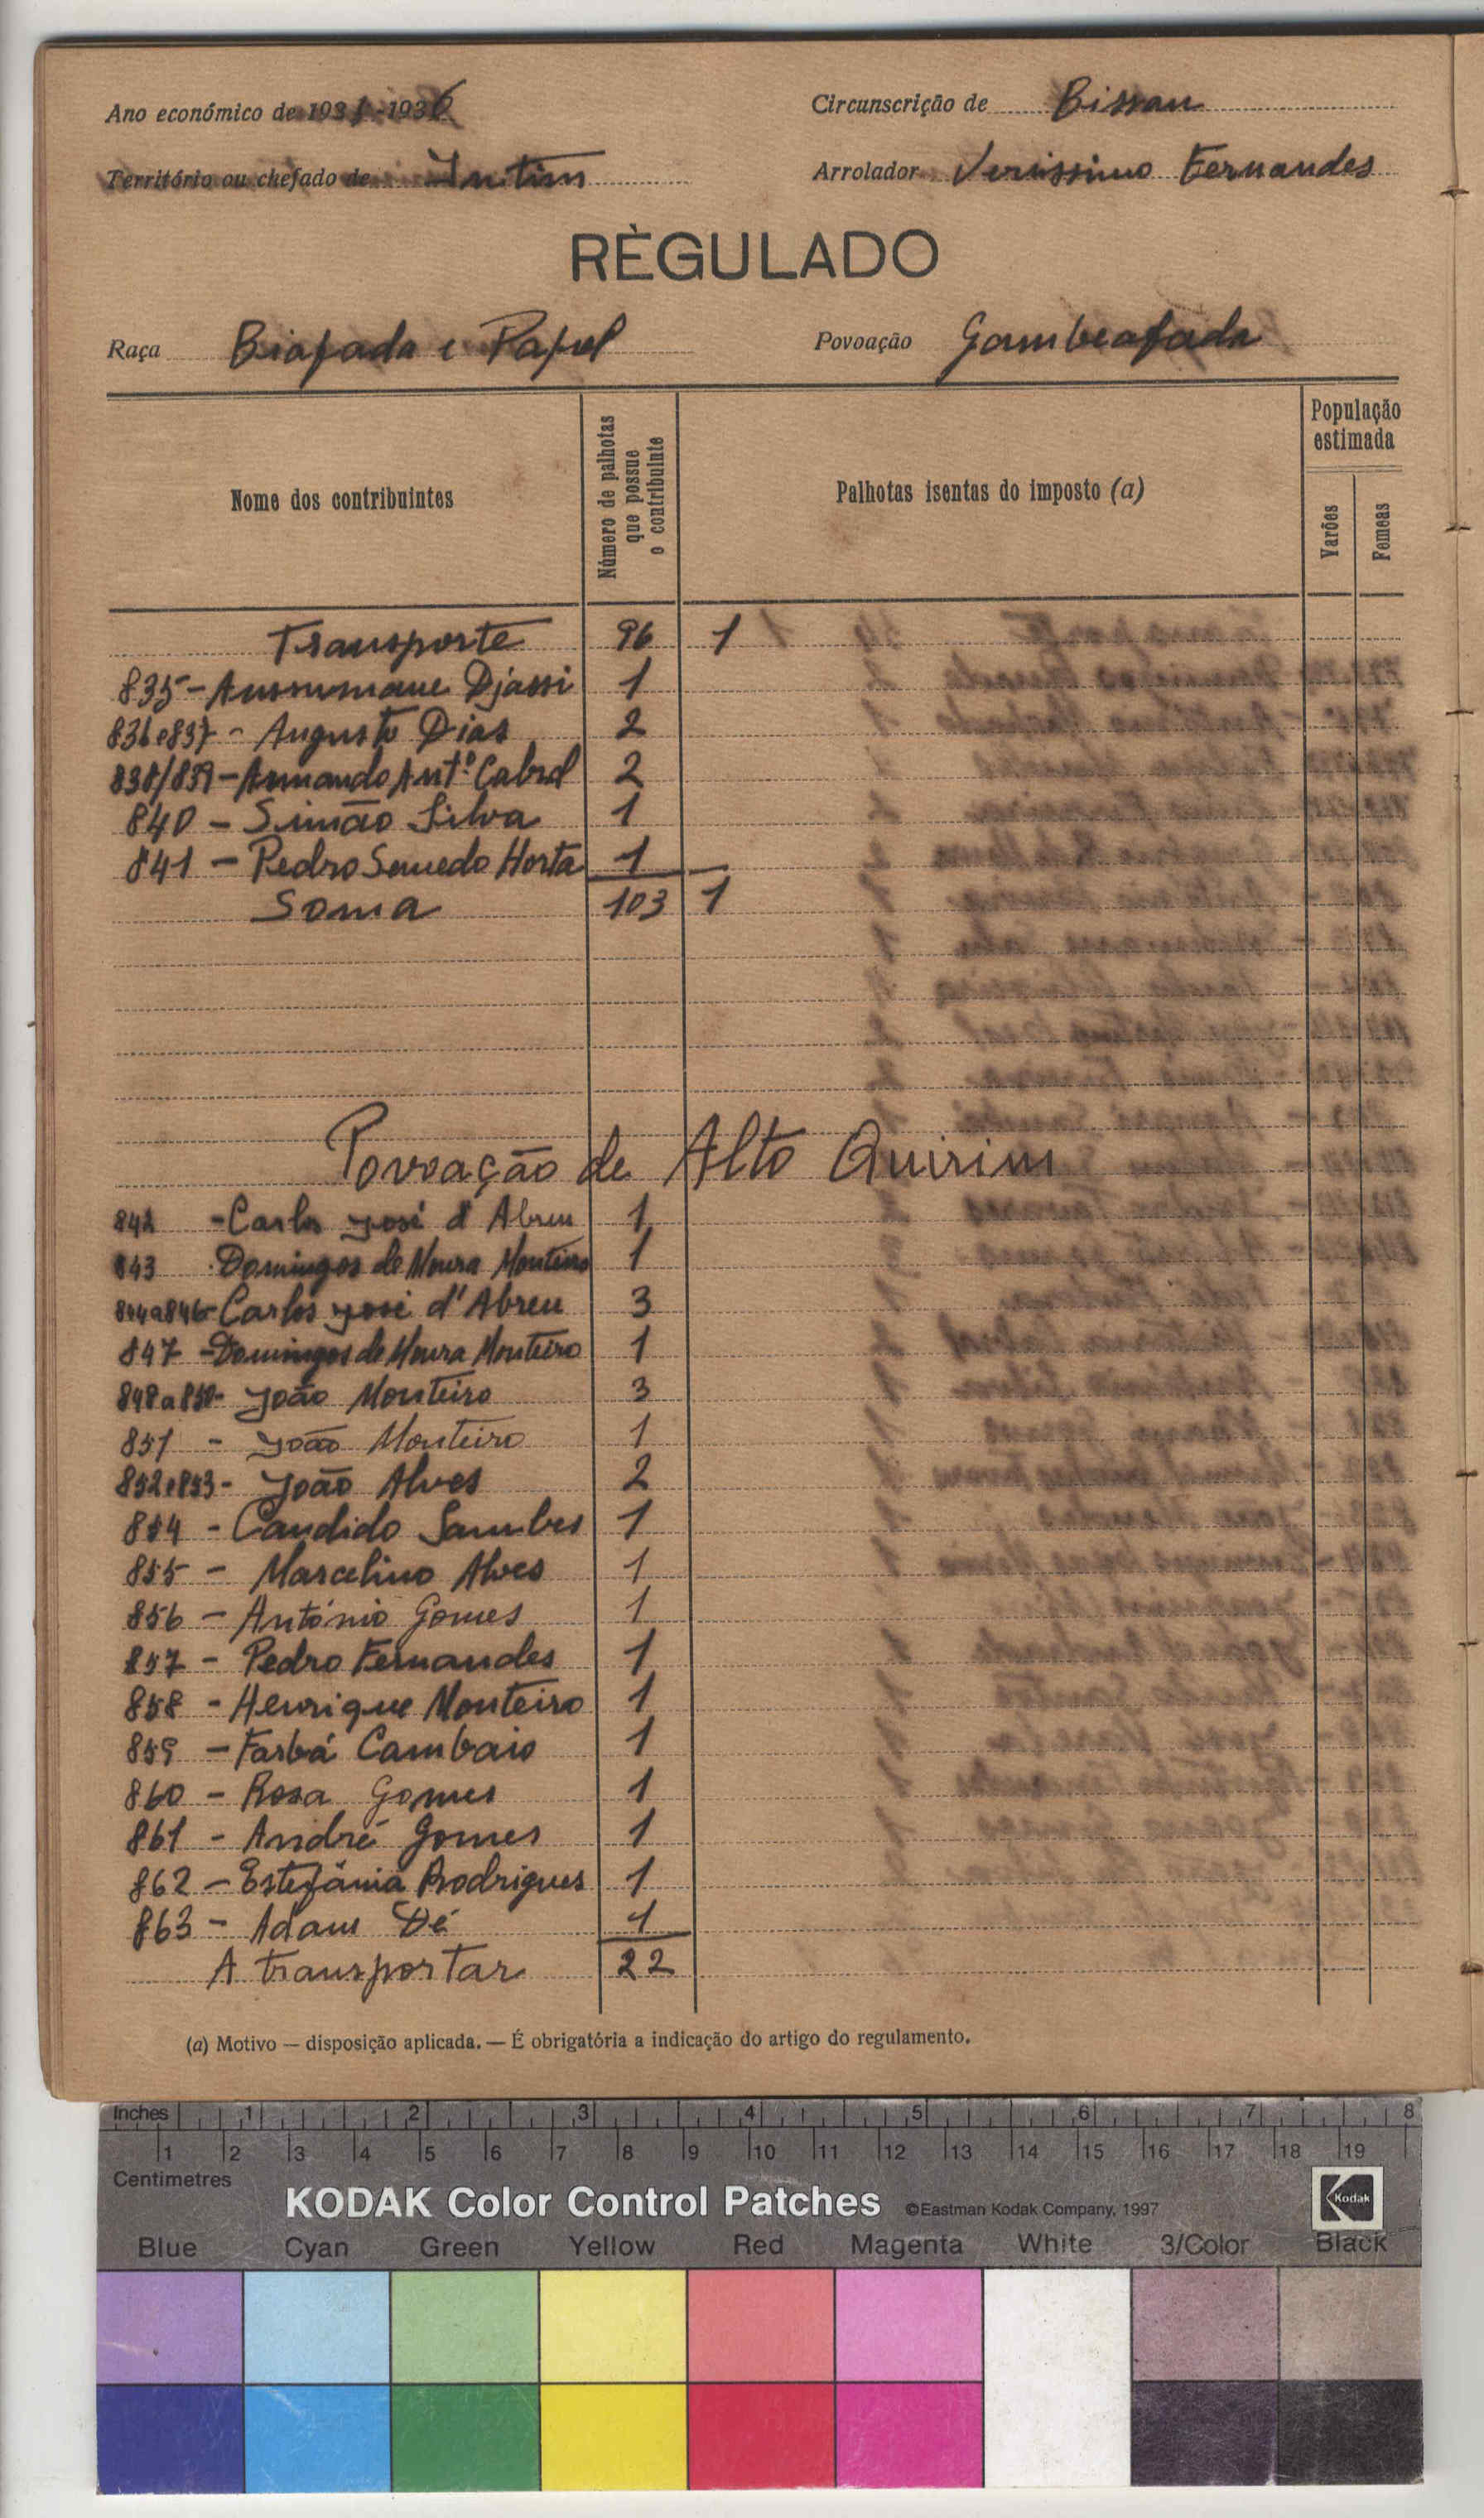 Ano económico de 1931-1936
Circunscrição de Bissau
Território ou chefado de Intim
Arrolador Verissimo Fernandes
RÈGULADO
Raça Biafada e Papel
Povoação Gambeafada
Nome dos contribuintes
Número de palhotas que possue o contribuinte
Palhotas isentas do imposto (a)
População estimada
Varões
Femeas
Transporte 96 1
835 - Aussumane Djassi 1
836e837 - Augusto Dias 2
838/839 - Armando Antº Cabral 2
840 - Simão Silva 1
841 - Pedro Semedo Horta 1
Soma 103 1
Povoação de Alto Quirim
842 - Carlos José d'Abreu 1
843 - Domingos de Moura Monteiro 1
844a846 - Carlos José d'Abreu 3
847 - Domingos de Moura Monteiro 1
848a850 - João Monteiro 3
851 - João Monteiro 1
852e853 - João Alves 2
854 - Candido Sambes 1
855 - Marcelino Alves 1
856 - António Gomes 1
857 - Pedro Fernandes 1
858 - Henrique Monteiro 1
859 - Farbá Cambaio 1
860 - Rosa Gomes 1
861 - André Gomes 1
862 - Estefânia Rodrigues 1
863 - Adam Dé 1
A transportar 22
(a) Motivo — disposição aplicada. — É obrigatória a indicação do artigo do regulamento.
Inches 1 2 3 4 5 6 7 8
1 2 3 4 5 6 7 8 9 10 11 12 13 14 15 16 17 18 19
Centimetres
KODAK Color Control Patches ©Eastman Kodak Company, 1997 Kodak
Blue Cyan Green Yellow Red Magenta White 3/Color Black